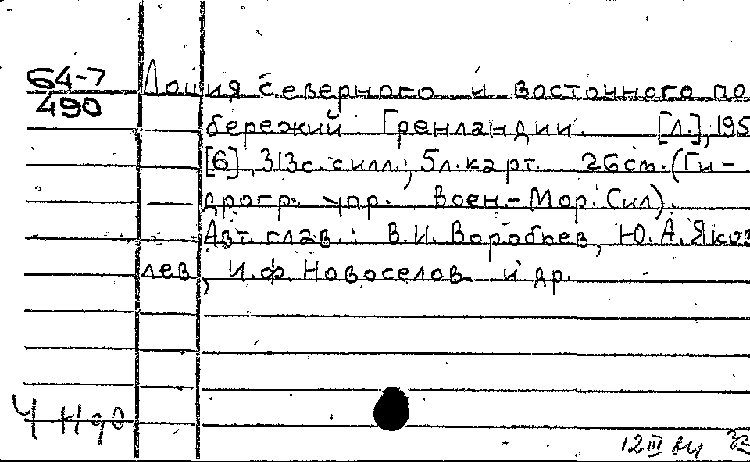 64-7
490
Лоция северного и восточного по
бережий Гренландии. [Л.], 195
[6], 313с. с илл.; 5л. карт. 26 см. (Ги-
дрогр. упр. Воен.-Мор. Сил).
Авт. глав.: В.И. Воробьев, Ю.А. Яков
лев, И.Ф. Новоселов и др.
12 III